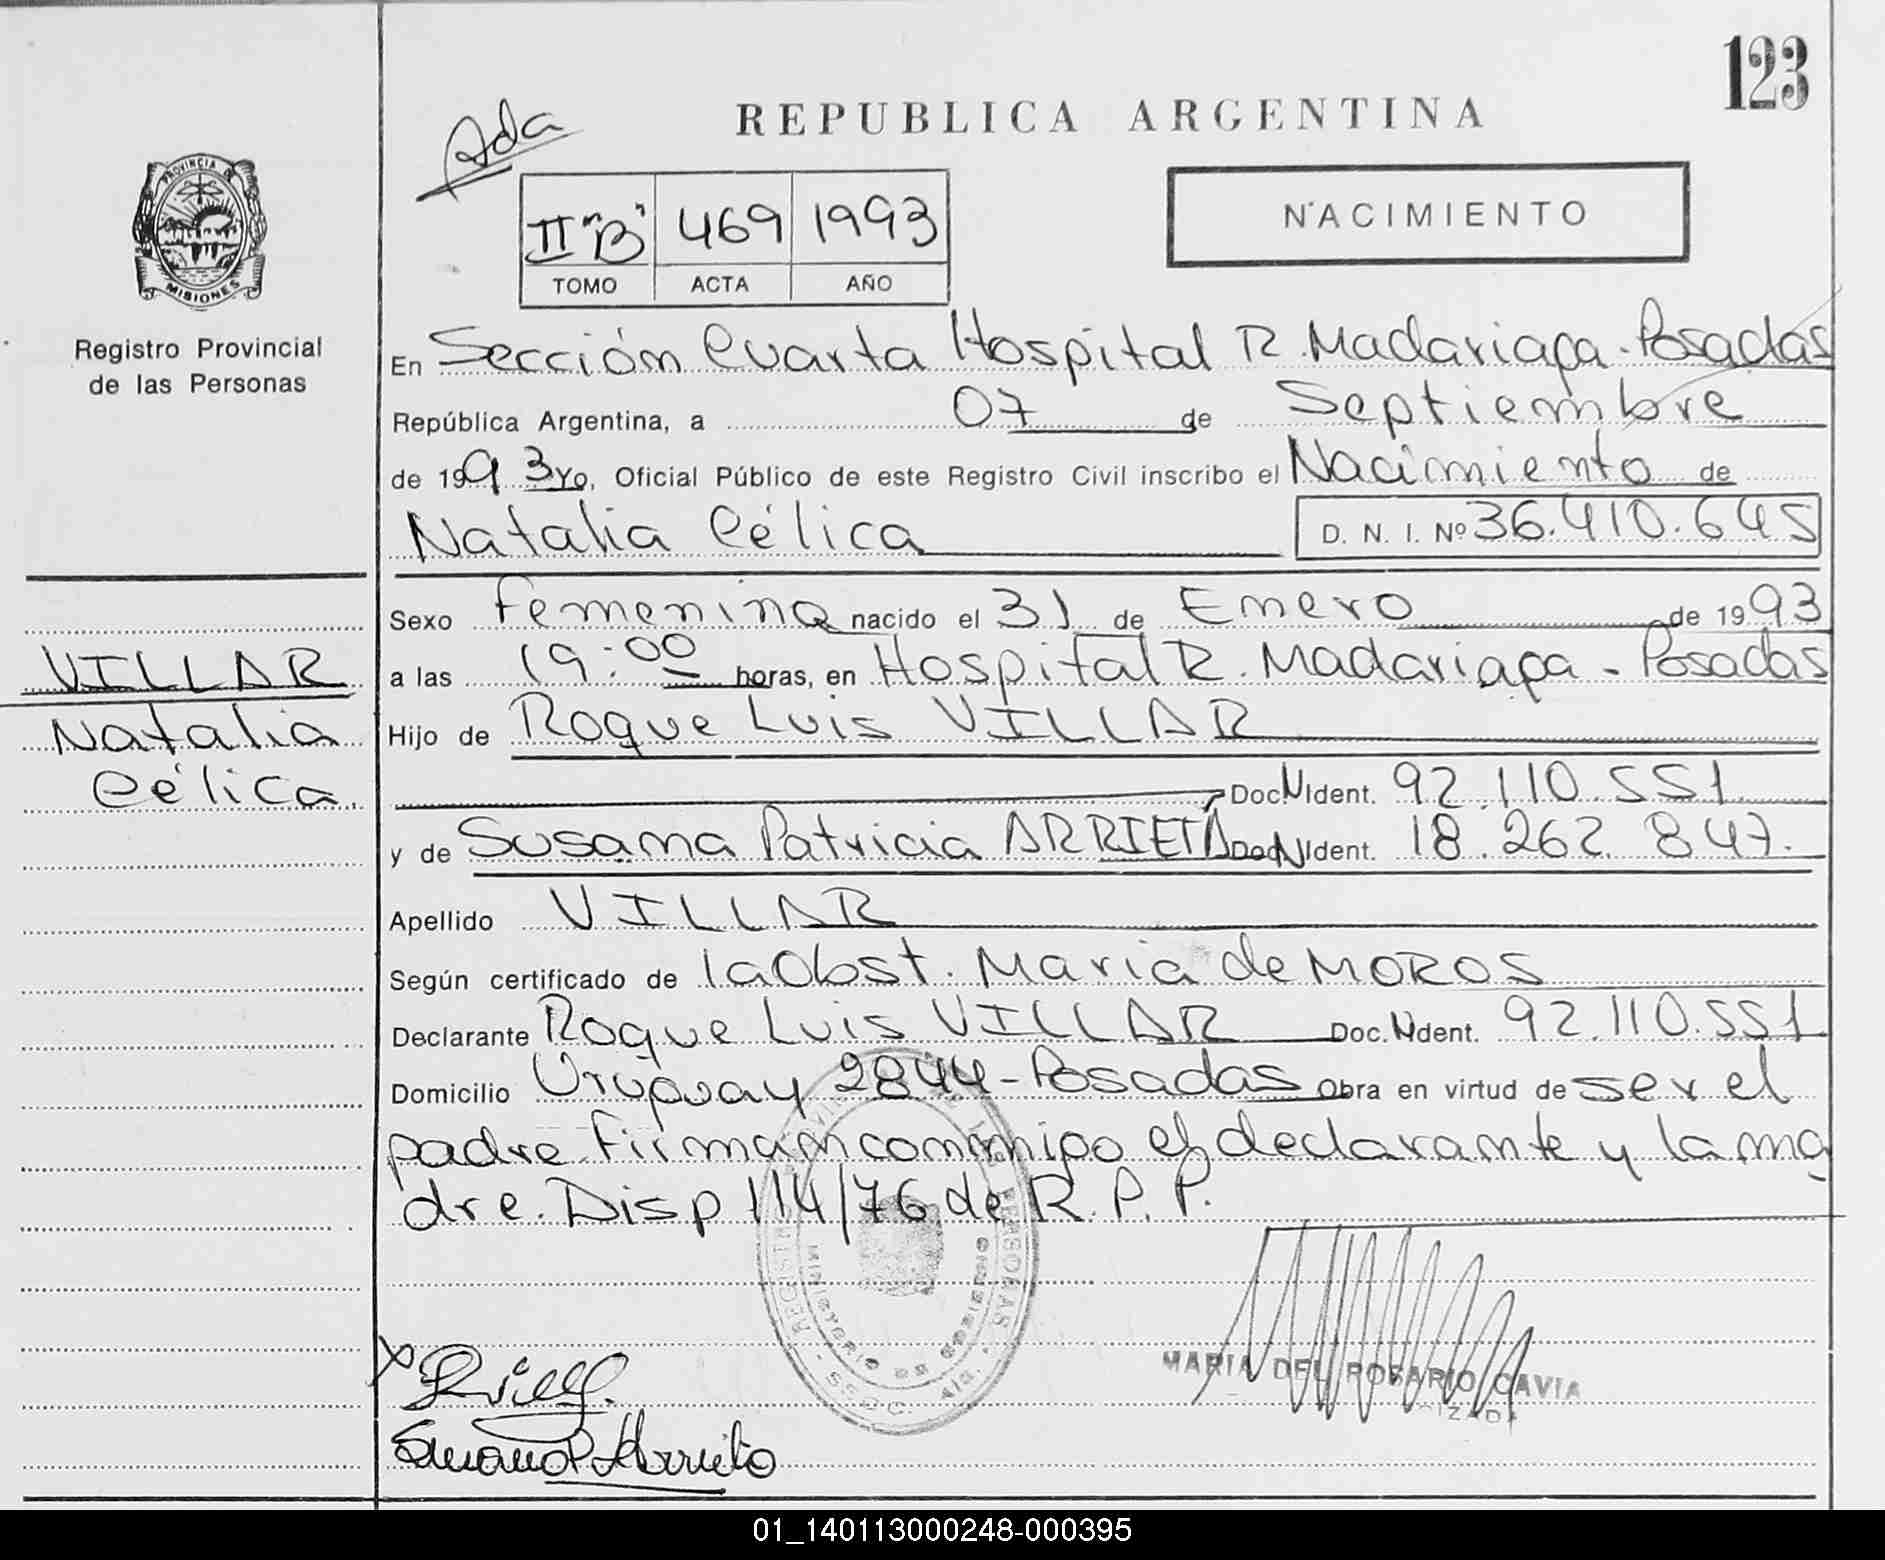 123
Ada
REPUBLICA ARGENTINA
PROVINCIA DE
MISIONES
Registro Provincial
de las Personas
II "B" 469 1993
TOMO ACTA AÑO
NACIMIENTO
En Sección Cuarta Hospital R. Madariaga - Posadas
República Argentina, a 07 de Septiembre
de 1993 Yo, Oficial Público de este Registro Civil inscribo el Nacimiento de
Natalia Célica D. N. I. Nº 36.410.645
Sexo Femenina nacido el 31 de Enero de 1993
a las 19:00 horas, en Hospital R. Madariaga - Posadas
Hijo de Roque Luis VILLAR
Doc. N Ident. 92.110.551
y de Susana Patricia ARRIETA Doc. N Ident. 18.262.847.
Apellido VILLAR
Según certificado de la Obst. Maria de MOROS
Declarante Roque Luis VILLAR Doc. N Ident. 92.110.551
Domicilio Uruguay 2844 - Posadas obra en virtud de ser el
padre. Firman conmigo el declarante y la ma
dre. Disp 114/76 de R. P. P.
VILLAR
Natalia
Célica.
REGISTRO PROVINCIAL DE LAS PERSONAS
MINISTERIO DE GOBIERNO
SECC. 4ta.
MARIA DEL ROSARIO CAVIA
Susana P. Arrieta
01_140113000248-000395